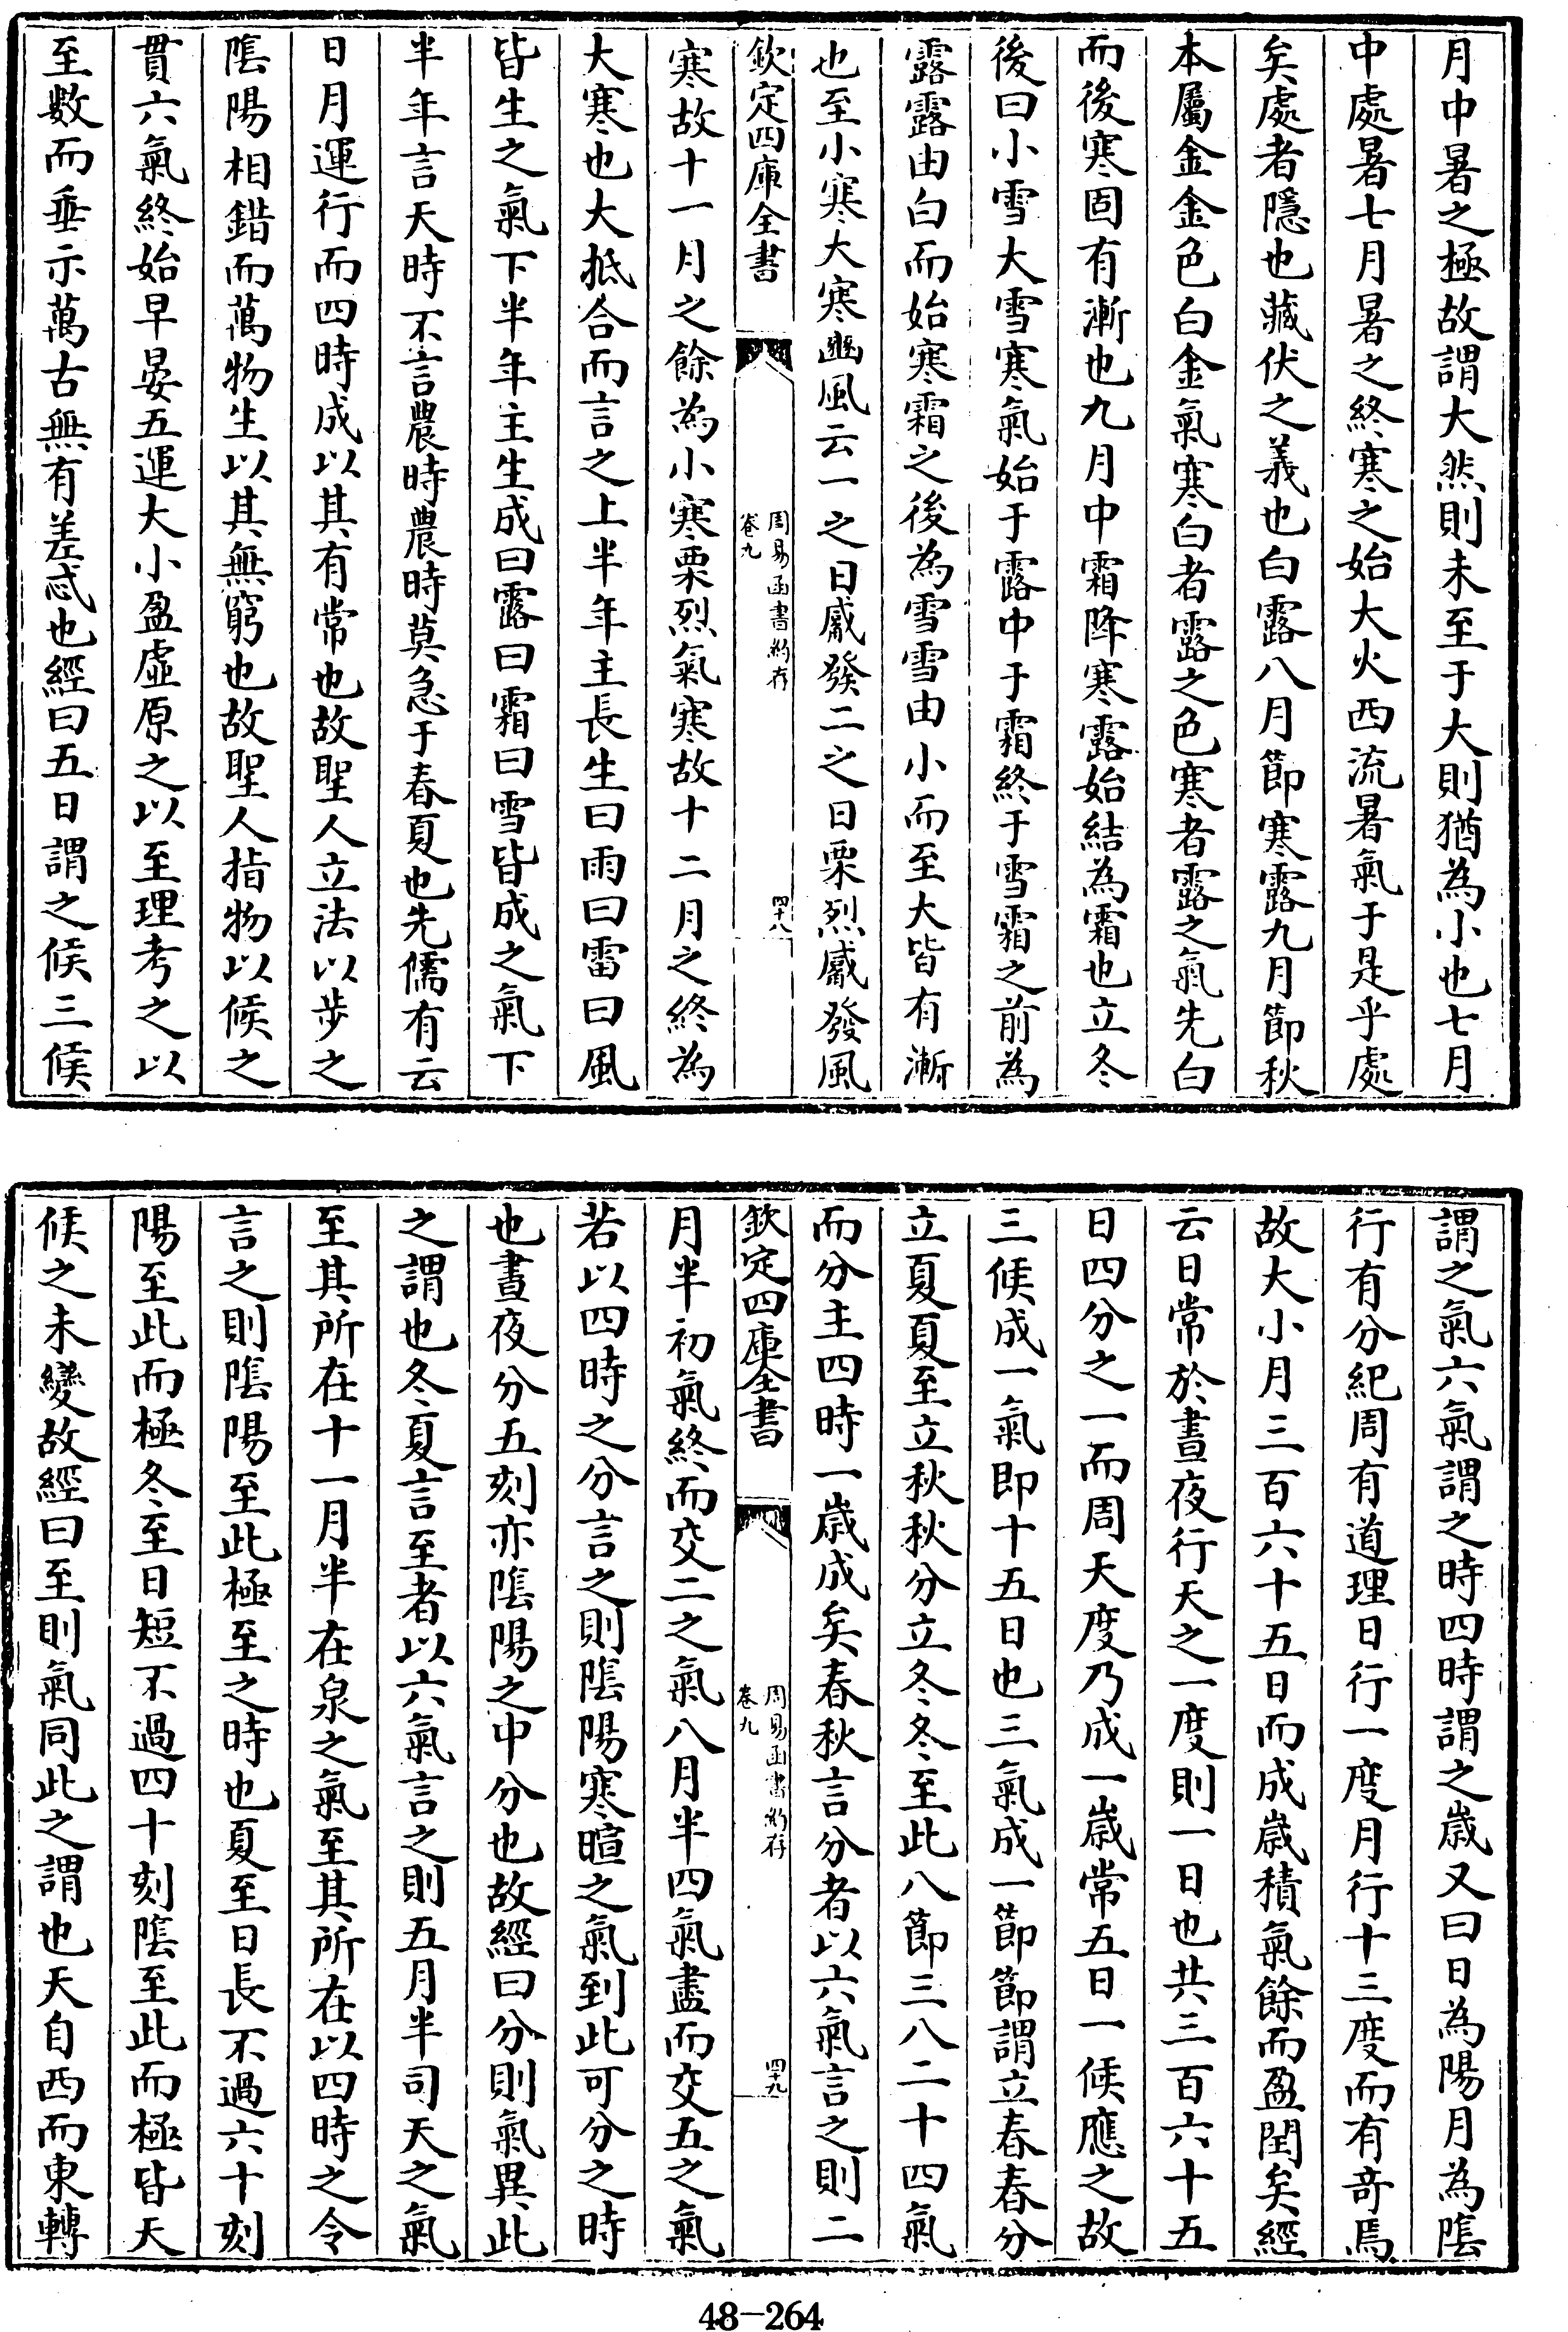 月中暑之極故謂大然則未至于大則猶為小也七月
中處暑七月暑之終寒之始大火西流暑氣于是乎處
矣處者隱也藏伏之義也白露八月節寒露九月節秋
本屬金金色白金氣寒白者露之色寒者露之氣先白
而後寒固有漸也九月中霜降寒露始結為霜也立冬
後曰小雪大雪寒氣始于露中于霜終于雪霜之前為
露露由白而始寒霜之後為雪雪由小而至大皆有漸
也至小寒大寒豳風云一之日觱發二之日栗烈觱發風
欽定四庫全書
周易函書約存
卷九
四十八
寒故十一月之餘為小寒栗烈氣寒故十二月之終為
大寒也大抵合而言之上半年主長生曰雨曰雷曰風
皆生之氣下半年主生成曰露曰霜曰雪皆成之氣下
半年言天時不言農時農時莫急于春夏也先儒有云
日月運行而四時成以其有常也故聖人立法以步之
陰陽相錯而萬物生以其無窮也故聖人指物以候之
貫六氣終始早晏五運大小盈虛原之以至理考之以
至數而垂示萬古無有差忒也經曰五日謂之候三候
謂之氣六氣謂之時四時謂之歲又曰日為陽月為陰
行有分紀周有道理日行一度月行十三度而有奇焉
故大小月三百六十五日而成歲積氣餘而盈閏矣經
云日常於晝夜行天之一度則一日也共三百六十五
日四分之一而周天度乃成一歲常五日一候應之故
三候成一氣即十五日也三氣成一節節謂立春春分
立夏夏至立秋秋分立冬冬至此八節三八二十四氣
而分主四時一歲成矣春秋言分者以六氣言之則二
欽定四庫全書
周易函書約存
卷九
四十九
月半初氣終而交二之氣八月半四氣盡而交五之氣
若以四時之分言之則陰陽寒暄之氣到此可分之時
也晝夜分五刻亦陰陽之中分也故經曰分則氣異此
之謂也冬夏言至者以六氣言之則五月半司天之氣
至其所在十一月半在泉之氣至其所在以四時之令
言之則陰陽至此極至之時也夏至日長不過六十刻
陽至此而極冬至日短不過四十刻陰至此而極皆天
候之未變故經曰至則氣同此之謂也天自西而東轉
48-264